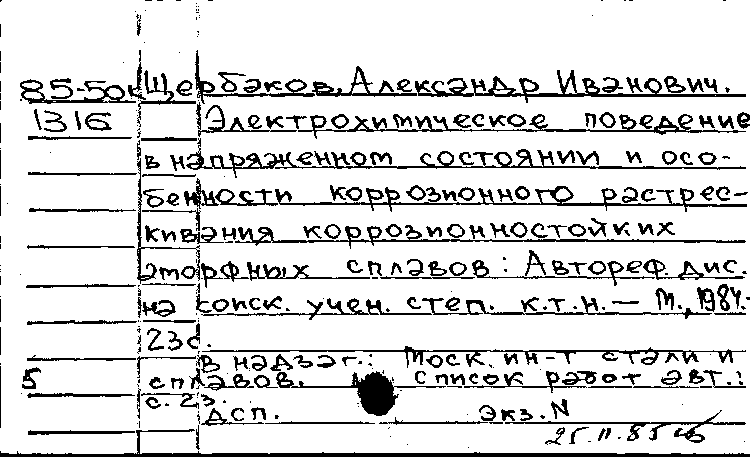 85-50к Щербаков, Александр Иванович.
1316 Электрохимическое поведение
в напряженном состоянии и осо-
бенности коррозионного растрес-
кивания коррозионностойких
аморфных сплавов: Автореф. дис.
на соиск. учен. степ. к.т.н. — М., 1984.-
23с.
В надзаг.: Моск. ин-т стали и
5 сплавов. Список работ авт.:
с. 23.
ДСП. Экз. N
25.11.85